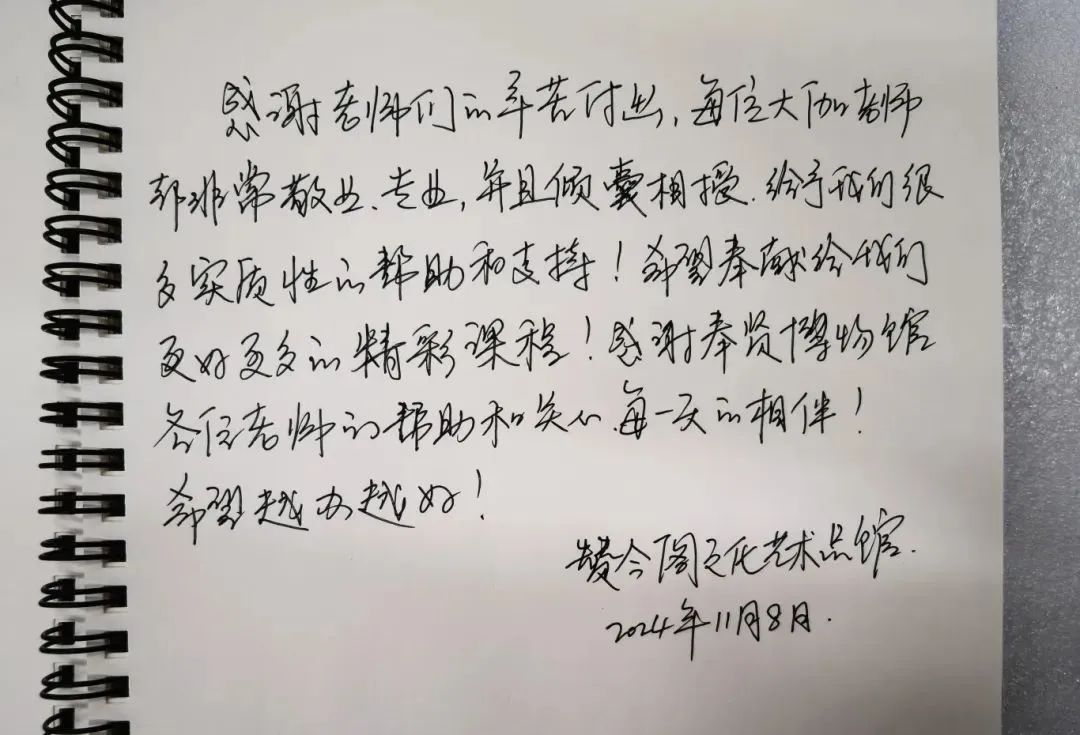 感谢老师们的辛苦付出,每位大伽老师
都非常敬业、专业,并且倾囊相授.给予我们很
多实质性的帮助和支持!希望奉献给我们
更好更多的精彩课程!感谢奉贤博物馆
各位老师的帮助和关心.每一天的相伴!
希望越办越好!
今阁文化艺术品馆.
2024年11月8日.